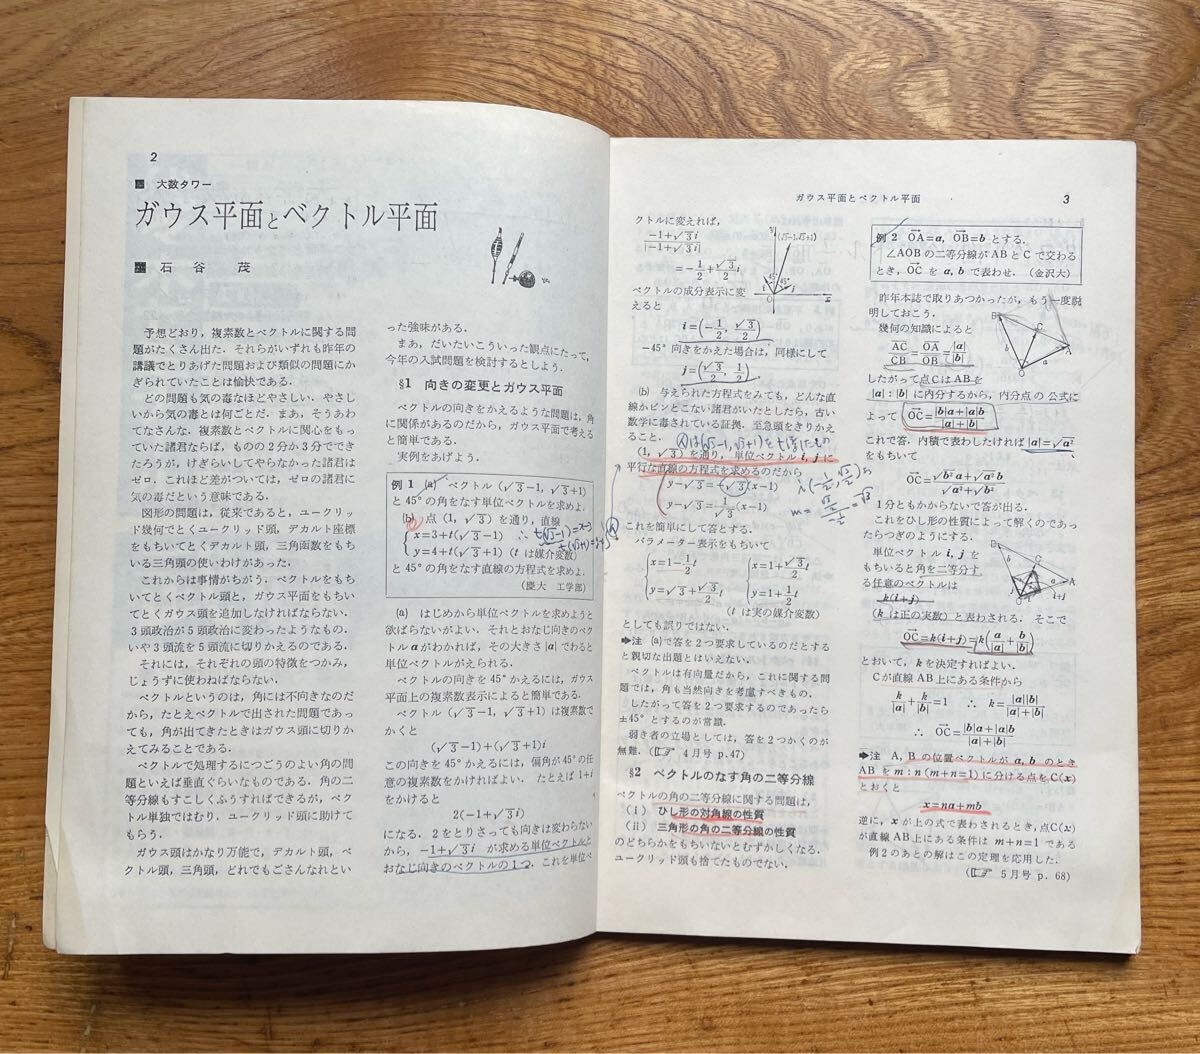 2
大数タワー
ガウス平面とベクトル平面
石谷 茂
予想どおり，複素数とベクトルに関する問
題がたくさん出た．それらがいずれも昨年の
講議でとりあげた問題および類似の問題にか
ぎられていたことは愉快である．
どの問題も気の毒なほどやさしい．やさし
いから気の毒とは何ごとだ．まあ，そうあわ
てなさんな．複素数とベクトルに関心をもっ
ていた諸君ならば，ものの2分か3分ででき
たろうが，けぎらいしてやらなかった諸君は
ゼロ．これほど差がついては，ゼロの諸君に
気の毒だという意味である．
図形の問題は，従来であると，ユークリッ
ド幾何でとくユークリッド頭，デカルト座標
をもちいてとくデカルト頭，三角函数をもち
いる三角頭の使いわけがあった．
これからは事情がちがう．ベクトルをもち
いてとくベクトル頭と，ガウス平面をもちい
てとくガウス頭を追加しなければならない．
3頭政治が5頭政治に変わったようなもの．
いや3頭流を5頭流に切りかえるのである．
それには，それぞれの頭の特徴をつかみ，
じょうずに使わねばならない．
ベクトルというのは，角には不向きなのだ
から，たとえベクトルで出された問題であっ
ても，角が出てきたときはガウス頭に切りか
えてみることである．
ベクトルで処理するにつごうのよい角の問
題といえば垂直ぐらいなものである．角の二
等分線もすこしくふうすればできるが，ベク
トル単独ではむり．ユークリッド頭に助けて
もらう．
ガウス頭はかなり万能で，デカルト頭，ベ
クトル頭，三角頭，どれでもござんなれとい
った強味がある．
まあ，だいたいこういった観点にたって，
今年の入試問題を検討するとしよう．
§1 向きの変更とガウス平面
ベクトルの向きをかえるような問題は，角
に関係があるのだから，ガウス平面で考える
と簡単である．
実例をあげよう．
例1 (a) ベクトル (√3−1, √3+1)
と45°の角をなす単位ベクトルを求めよ．
(b) 点 (1, √3) を通り，直線
x=3+t(√3−1)
y=4+t(√3+1) (t は媒介変数)
と45°の角をなす直線の方程式を求めよ．
(慶大 工学部)
(a) はじめから単位ベクトルを求めようと
欲ばらないがよい．それとおなじ向きのベク
トル a がわかれば，その大きさ |a| でわると
単位ベクトルがえられる．
ベクトルの向きを45°かえるには，ガウス
平面上の複素数表示によると簡単である．
ベクトル (√3−1, √3+1) は複素数で
かくと
(√3−1)+(√3+1)i
この向きを45°かえるには，偏角が45°の任
意の複素数をかければよい． たとえば 1+i
をかけると
2(−1+√3i)
になる．2をとりさっても向きは変わらない
から，−1+√3i が求める単位ベクトルと
おなじ向きのベクトルの1つ．これを単位ベ
ガウス平面とベクトル平面 3
クトルに変えれば，
(−1+√3i)/|−1+√3i|
=−1/2+(√3/2)i
(√3−1, √3+1)
y
45°
45°
j
i
O
x
ベクトルの成分表示に変
えると
i=(−1/2, √3/2)
−45°向きをかえた場合は，同様にして
j=(√3/2, 1/2)
(b) 与えられた方程式をみても，どんな直
線かピンとこない諸君がいたとしたら，古い
数学に毒されている証拠．至急頭をきりかえ
ること．
(1, √3) を通り，単位ベクトル i, j に
平行な直線の方程式を求めるのだから
y−√3=−√3(x−1)
y−√3=1/√3(x−1)
これを簡単にして答とする．
パラメーター表示をもちいて
x=1−1/2 t
y=√3+√3/2 t
x=1+√3/2 t
y=1+1/2 t
(t は実の媒介変数)
としても誤りではない．
➡注 (a)で答を2つ要求しているのだとする
と親切な出題とはいえない．
ベクトルは有向量だから，これに関する問
題では，角も当然向きを考慮すべきもの．
したがって答を2つ要求するのであったら
±45° とするのが常識．
弱き者の立場としては，答を2つかくのが
無難．(☞ 4月号 p.47)
§2 ベクトルのなす角の二等分線
ベクトルの角の二等分線に関する問題は，
(i) ひし形の対角線の性質
(ii) 三角形の角の二等分線の性質
のどちらかをもちいないとむずかしくなる．
ユークリッド頭も捨てたものでない．
例2 OA=a, OB=b とする．
∠AOBの二等分線が AB と C で交わる
とき，OC を a, b で表わせ．(金沢大)
昨年本誌で取りあつかったが，もう一度説
明しておこう．
幾何の知識によると
AC/CB=OA/OB=|a|/|b|
したがって点CはABを
|a|:|b| に内分するから，内分点の公式に
よって OC=(|b|a+|a|b)/(|a|+|b|)
これで答．内積で表わしたければ |a|=√a²
をもちいて
OC=(√b² a+√a² b)/(√a²+√b²)
1分もかからないで答が出る．
これをひし形の性質によって解くのであっ
たらつぎのようにする．
単位ベクトル i, j を
もちいると角を二等分す
る任意のベクトルは
k(i+j)
(k は正の実数) と表わされる．そこで
OC=k(i+j)=k(a/|a|+b/|b|)
とおいて，k を決定すればよい．
Cが直線AB上にある条件から
k/|a|+k/|b|=1 ∴ k=|a||b|/(|a|+|b|)
∴ OC=(|b|a+|a|b)/(|a|+|b|)
➡注 A, B の位置ベクトルが a, b のとき
AB を m:n(m+n=1) に分ける点を C(x)
とおくと
x=na+mb
逆に，x が上の式で表わされるとき，点C(x)
が直線AB上にある条件は m+n=1 である
例2のあとの解はこの定理を応用した．
(☞ 5月号 p.68)